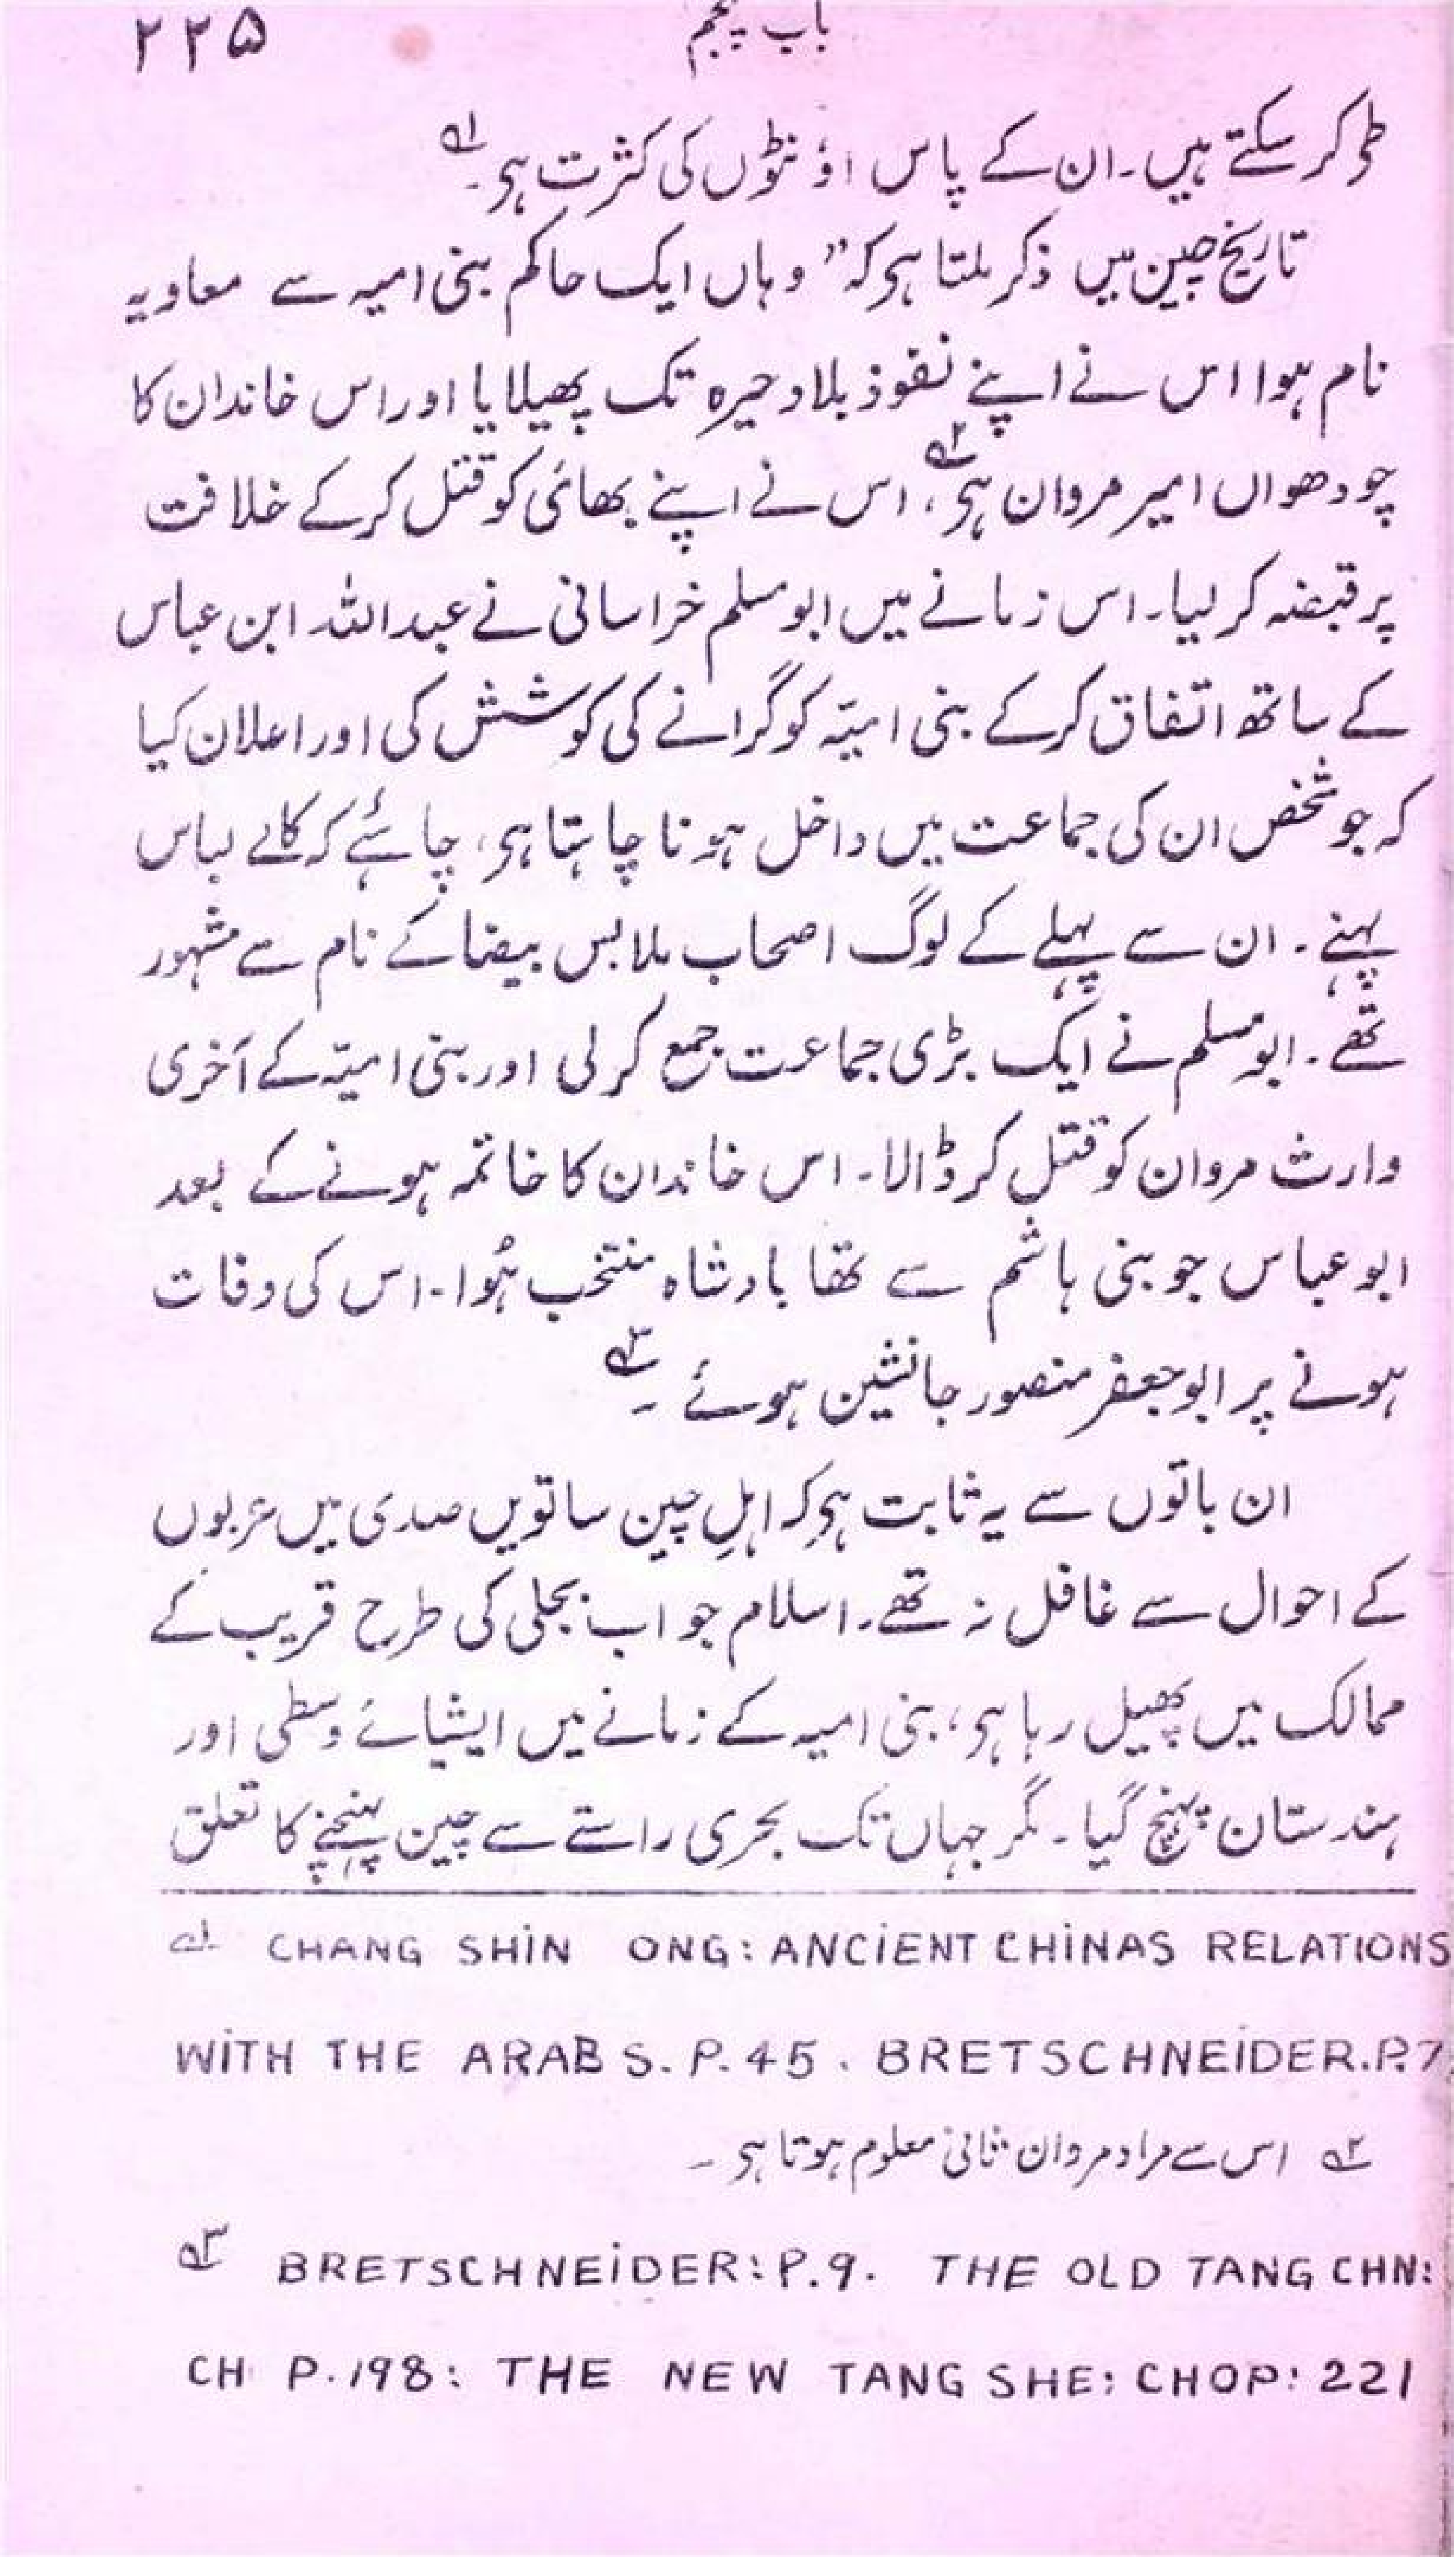 باب پنجم ۲۲۵
طی کر سکتے ہیں۔ ان کے پاس اؤنٹوں کی کثرت ہی۔ لہ
تاریخ چین میں ذکر ملتا ہی کہ ” وہاں ایک حاکم بنی امیہ سے معاویہ
نام ہوا اس نے اپنے نفوذ بلاد حیرہ تک پھیلایا اور اس خاندان کا
چودھواں امیر مروان ہی ۲ہ، اس نے اپنے بھائی کو قتل کر کے خلافت
پر قبضہ کر لیا۔ اس زمانے میں ابو مسلم خراسانی نے عبداللہ ابن عباس
کے ساتھ اتفاق کر کے بنی امیّہ کو گرانے کی کوشش کی اور اعلان کیا
کہ جو شخص ان کی جماعت میں داخل ہونا چاہتا ہی، چاہئے کہ کالے لباس
پہنے۔ ان سے پہلے کے لوگ اصحاب ملابس بیضا کے نام سے مشہور
تھے۔ ابو مسلم نے ایک بڑی جماعت جمع کر لی اور بنی امیّہ کے آخری
وارث مروان کو قتل کر ڈالا۔ اس خاندان کا خاتمہ ہونے کے بعد
ابو عباس جو بنی ہاشم سے تھا بادشاہ منتخب ہُوا۔ اس کی وفات
ہونے پر ابو جعفر منصور جانشین ہوئے۔ ۳ہ
ان باتوں سے یہ ثابت ہی کہ اہلِ چین ساتویں صدی میں عربوں
کے احوال سے غافل نہ تھے۔ اسلام جو اب بجلی کی طرح قریب کے
ممالک میں پھیل رہا ہی، بنی امیہ کے زمانے میں ایشیائے وسطی اور
ہندستان پہنچ گیا۔ مگر جہاں تک بحری راستے سے چین پہنچنے کا تعلق
لہ CHANG SHIN ONG: ANCIENT CHINAS RELATIONS
WITH THE ARABS. P. 45. BRETSCHNEIDER. P. 7
۲ہ اس سے مراد مروان ثانی معلوم ہوتا ہی۔
۳ہ BRETSCHNEIDER: P. 9. THE OLD TANG CHN:
CH P. 198: THE NEW TANG SHE: CHOP: 221